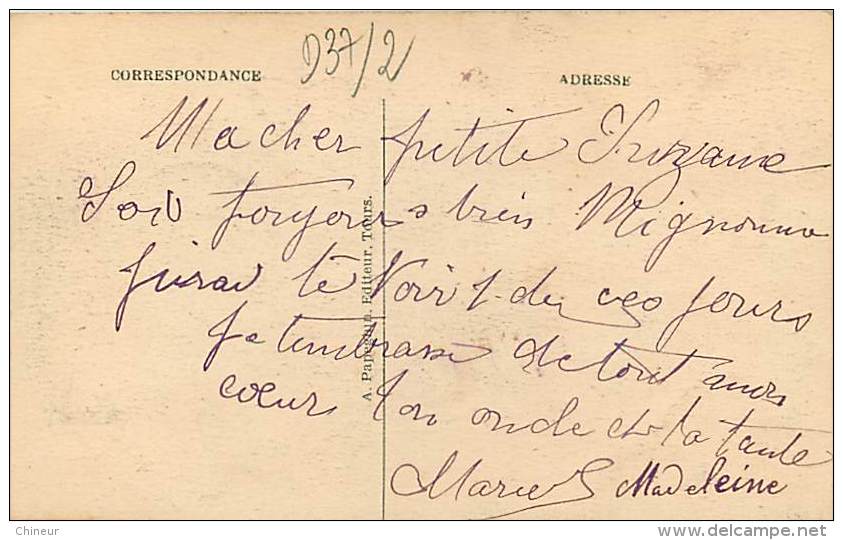 D37/2
CORRESPONDANCE
ADRESSE
Ma cher petite Suzane
Soit toujours bien Mignonne
j'irai te Voir 1 de ces jours
je t'embrasse de tout mon
coeur ton oncle et la tante
Marie Madeleine
A. Papeghin, Editeur, Tours.
Chineur
www.delcampe.net